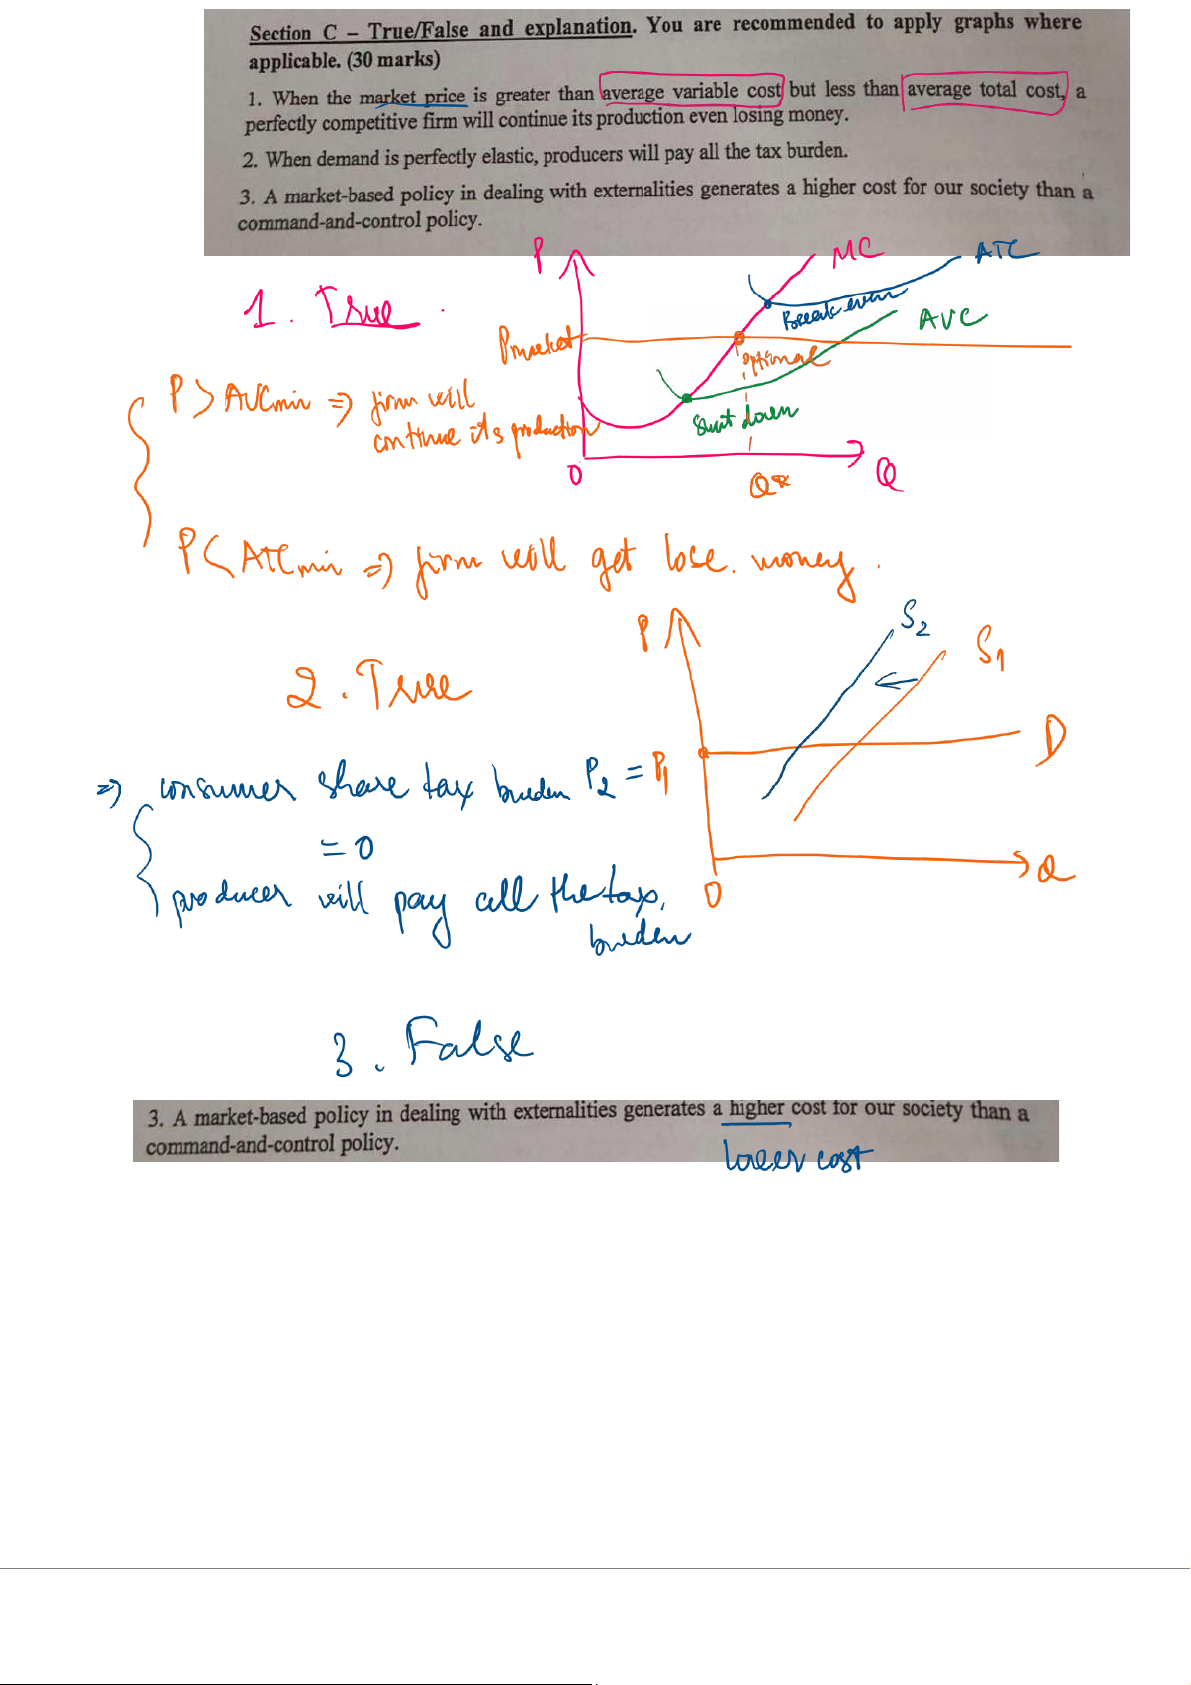 Section C – True/False and explanation. You are recommended to apply graphs where
applicable. (30 marks)
1. When the market price is greater than average variable cost but less than average total cost, a
perfectly competitive firm will continue its production even losing money.
2. When demand is perfectly elastic, producers will pay all the tax burden.
3. A market-based policy in dealing with externalities generates a higher cost for our society than a
command-and-control policy.
P
MC
ATC
1. True.
Break even
AVC
Pmarket
optional
P > AVCmin => firm will
continue its production
Shut down
0
Q*
Q
P < ATCmin => firm will get lose. money.
P
S2
S1
2. True
D
=> consumer share tax burden P2 = P1
= 0
producer will pay all the tax,
burden
0
Q
3. False
3. A market-based policy in dealing with externalities generates a higher cost for our society than a
command-and-control policy.
lower cost